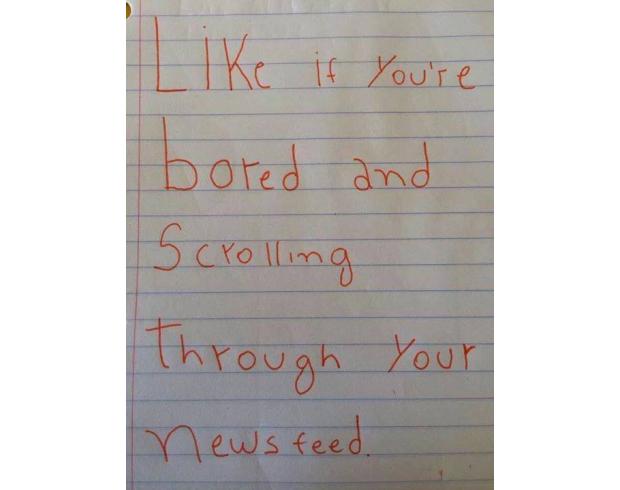 Like if you're
bored and
Scrolling
through your
newsfeed.